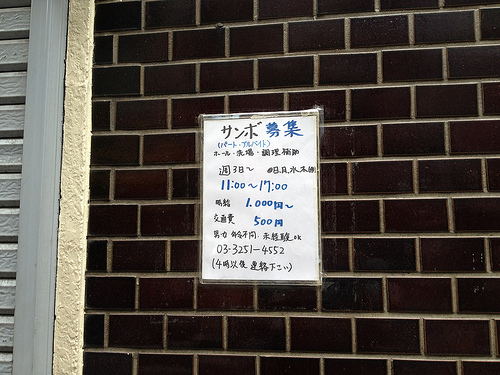 サンボ 募集
(パート・アルバイト)
ホール・洗場・調理補助
週3日〜 日.月.水.木.
11:00〜17:00
時給 1.000円〜
交通費 500円
男女 年令不問. 未経験OK
03-3251-4552
(4時以後 連絡下さい)